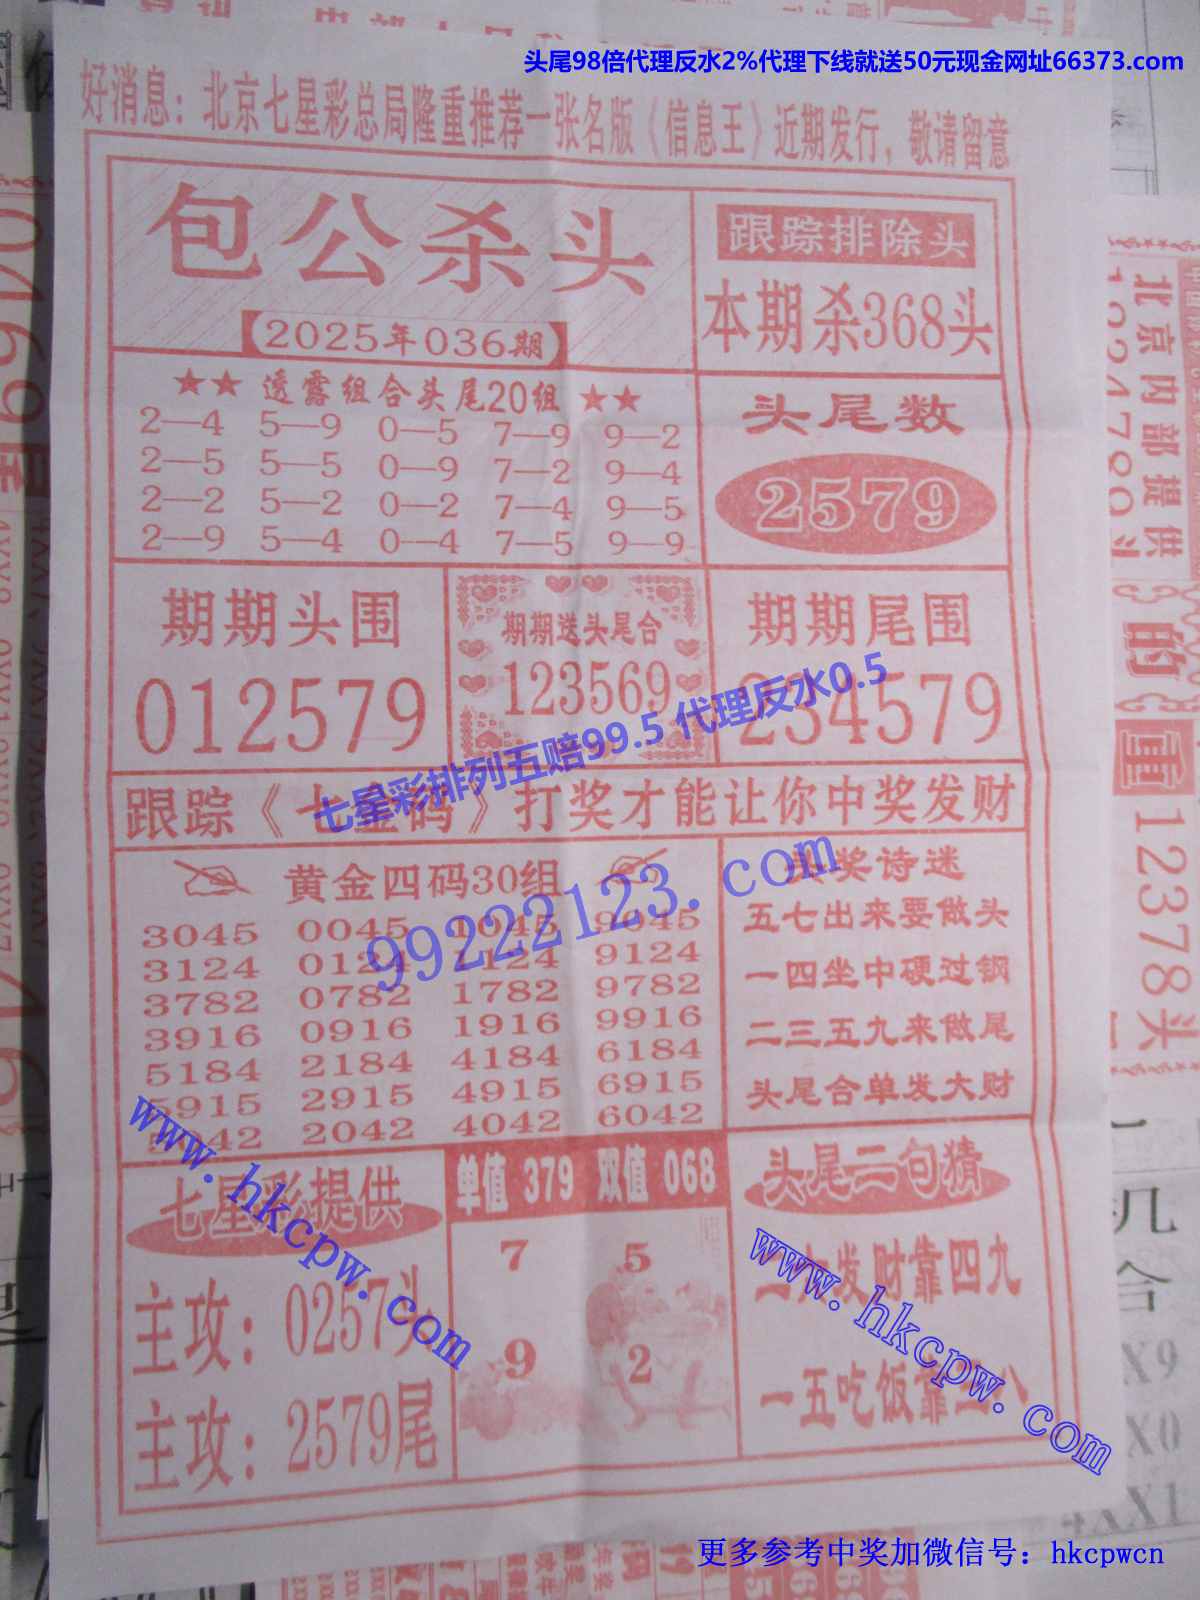 头尾98倍代理反水2%代理下线就送50元现金网址66373.com
好消息：北京七星彩总局隆重推荐一张名版《信息王》近期发行，敬请留意
包公杀头
【2025年036期】
跟踪排除头
本期杀368头
★★ 透露组合头尾20组 ★★
2—4 5—9 0—5 7—9 9—2
2—5 5—5 0—9 7—2 9—4
2—2 5—2 0—2 7—4 9—5
2—9 5—4 0—4 7—5 9—9
头尾数
2579
期期头围
012579
期期送头尾合
123569
期期尾围
234579
七星彩排列五赔99.5 代理反水0.5
跟踪《七金码》打奖才能让你中奖发财
黄金四码30组
3045 0045 1045 9045
3124 0124 1124 9124
3782 0782 1782 9782
3916 0916 1916 9916
5184 2184 4184 6184
5915 2915 4915 6915
5042 2042 4042 6042
99222123.com
头奖诗迷
五七出来要做头
一四坐中硬过钢
二三五九来做尾
头尾合单发大财
七星彩提供
主攻：0257头
主攻：2579尾
www.hkcpw.com
单值 379 双值 068
7 5
9 2
头尾二句猜
发财靠四九
一五吃饭靠三八
www.hkcpw.com
更多参考中奖加微信号：hkcpwcn
北京内部提供
的
重
12378头
几
合